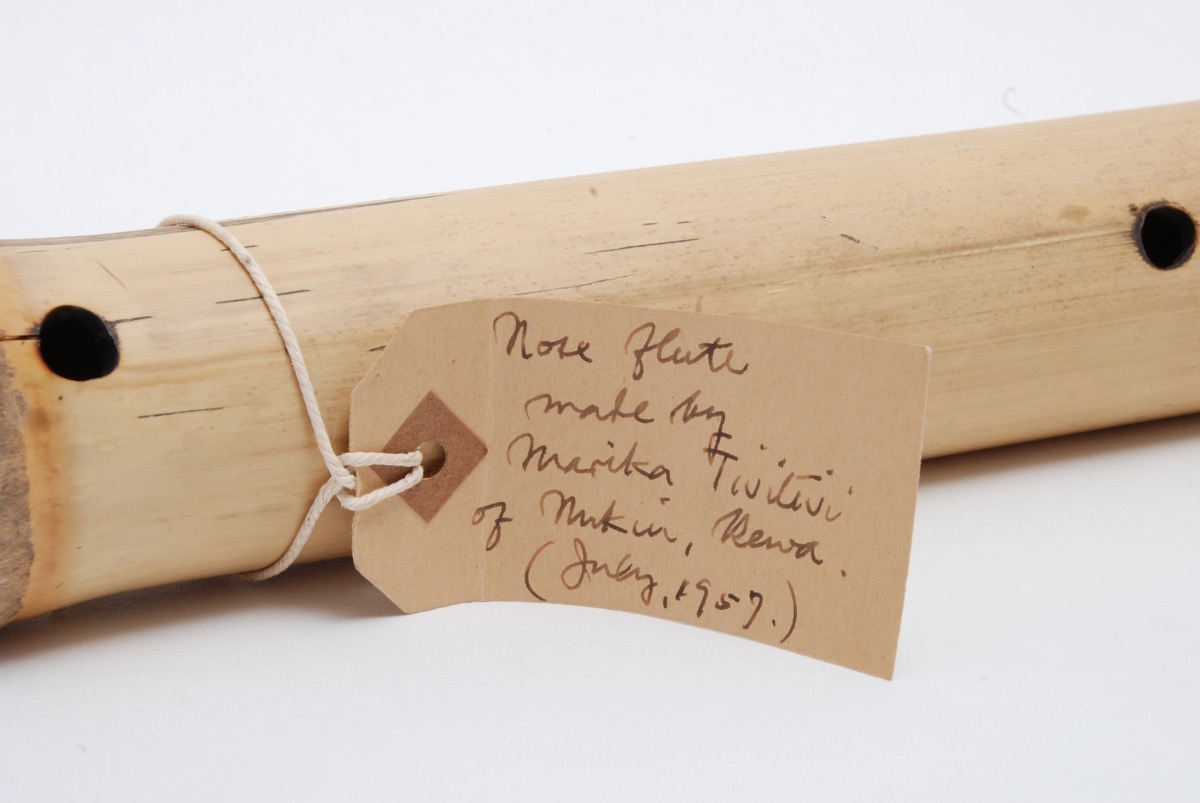 Nose flute
made by
Marika Tivitivi
of Nukui, Rewa.
(July, 1957.)